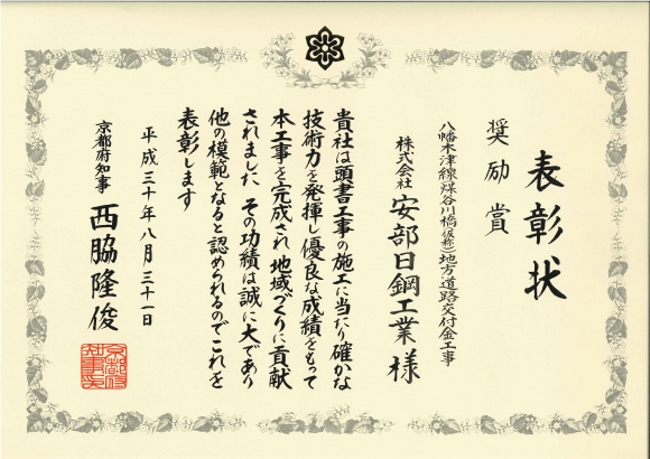 表彰状
奨励賞
八幡木津線煤谷川橋(仮称)地方道路交付金工事
株式会社 安部日鋼工業 様
貴社は頭書工事の施工に当たり確かな
技術力を発揮し優良な成績をもって
本工事を完成され 地域づくりに貢献
されました その功績は誠に大であり
他の模範となると認められるのでこれを
表彰します
平成三十年八月三十一日
京都府知事 西脇隆俊
京都府知事之印